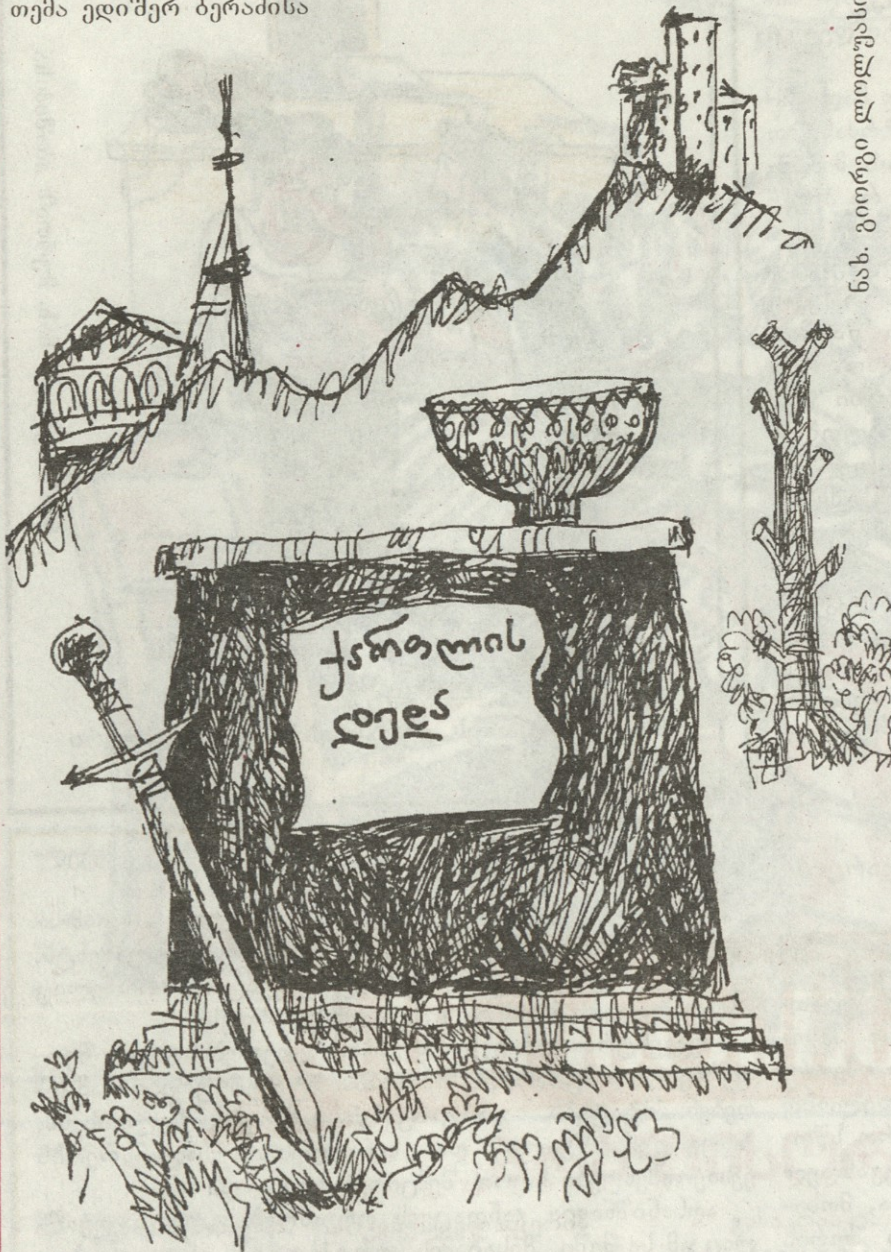 თემა ედიშერ ბერაძისა
ნახ. გიორგი ლოლუასი
ქართლის
დედა